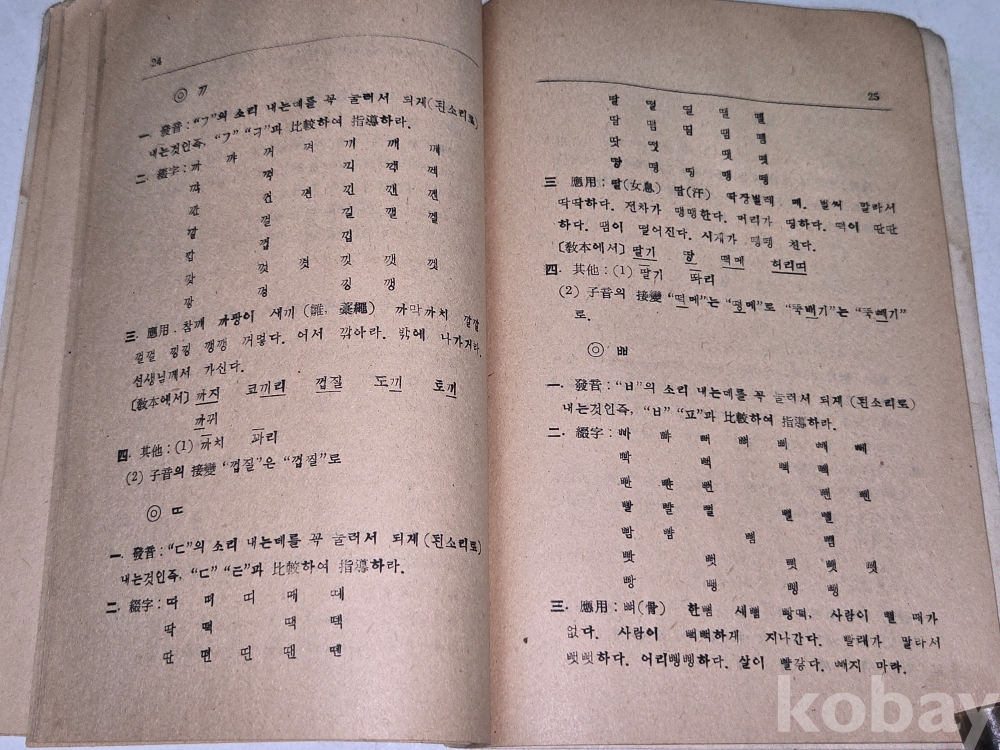 24
◎ ㄲ
一. 發音: “ㄱ”의 소리 내는데를 꼭 눌러서 되게(된소리로)
내는것인즉, “ㄱ” “ㅋ”과 比較하여 指導하라.
二. 綴字: 까 꺄 꺼 껴 끼 깨 께
깍 꺽 끽 깩 껙
깐 껀 껸 낀 깬 껜
깔 껄 낄 깰 껠
깝 껍 낍
깟 껏 꼇 낏 깻 껫
깡 껑 낑 깽
三. 應用. 참깨 까팡이 새끼 (雛, 藁繩) 까막까치 깔깔
껄껄 낑낑 깽깽 꺼멓다. 어서 깎아라. 밖에 나가거라.
선생님께서 가신다.
[敎本에서] 까지 코끼리 껍질 도끼 토끼
까귀
四. 其他: (1) 까치 파리
(2) 子音의 接變 “껍질”은 “껍찔”로
◎ ㄸ
一. 發音: “ㄷ”의 소리 내는데를 꼭 눌러서 되게(된소리로)
내는것인즉, “ㄷ” “ㅌ”과 比較하여 指導하라.
二. 綴字: 따 떠 띠 때 떼
딱 떡 땍 떽
딴 떤 띤 땐 뗀
25
딸 떨 띨 땔 뗄
땀 떰 띰 땜 뗌
땃 떳 땟 뗏
땅 떵 띵 땡 뗑
三 應用: 딸(女息) 땀(汗) 딱장벌레 떼. 벌써 말라서
딱딱하다. 전차가 땡땡한다. 머리가 띵하다. 떡이 딴딴
하다. 땀이 떨어진다. 시계가 땡땡 친다.
[敎本에서] 딸기 땅 떡메 허리띠
四. 其他: (1) 딸기 똬리
(2) 子音의 接變 “떡메”는 “떵메”로 “뚝배기”는 “뚝빼기”
로.
◎ ㅃ
一. 發音: “ㅂ”의 소리 내는데를 꼭 눌러서 되게 (된소리로)
내는것인즉, “ㅂ” “ㅍ”과 比較하여 指導하라.
二. 綴字: 빠 뺘 뻐 뼈 삐 빼 뻬
빡 뻑 삑 빽
빤 뺜 뻔 뺀 뻰
빨 뺠 뻘 뺄 뻴
빰 뺨 뺌
빳 뻣 뺏 뺏 뻿
빵 뻥 뺑 뼁
三. 應用: 뼈(骨) 한뼘 세뼘 빵떡, 사람이 뺄 때가
없다. 사람이 빽빽하게 지나간다. 빨래가 말라서
뻣뻣하다. 어리뻥뻥하다. 살이 빨갛다. 빼지 마라.
kobay